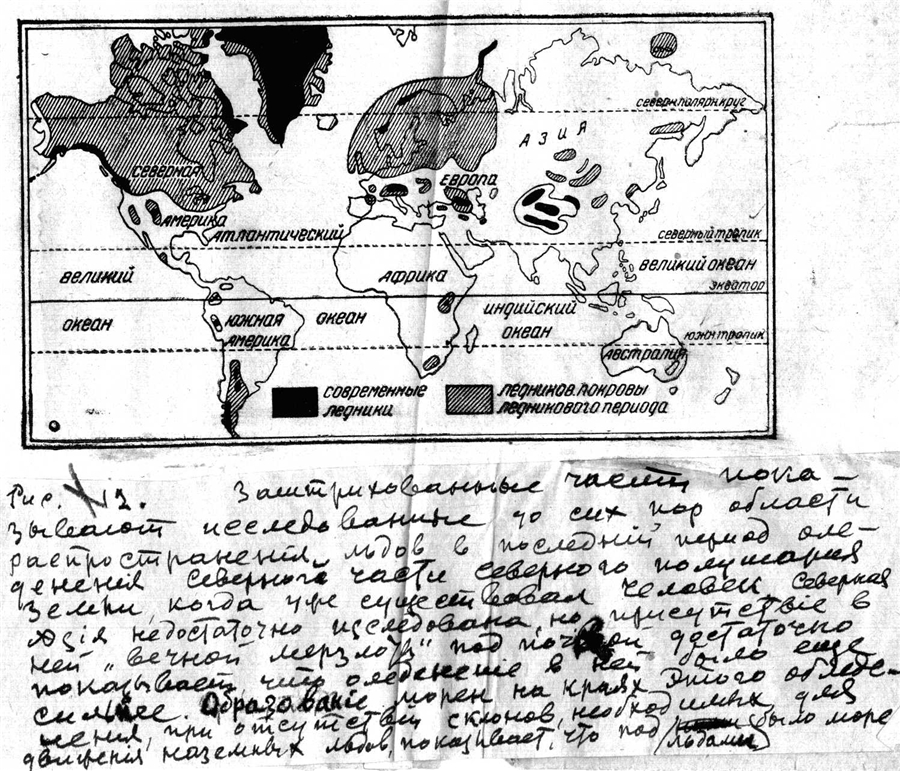 СЕВЕРН.ПОЛЯРН.КРУГ
АЗИЯ
СЕВЕРНАЯ
ЕВРОПА
АМЕРИКА
АТЛАНТИЧЕСКИЙ
СЕВЕРНЫЙ ТРОПИК
ВЕЛИКИЙ
АФРИКА
ВЕЛИКИЙ ОКЕАН
ЭКВАТОР
ОКЕАН
ЮЖНАЯ
АМЕРИКА
ОКЕАН
ИНДИЙСКИЙ
ОКЕАН
ЮЖН.ТРОПИК
АВСТРАЛИЯ
СОВРЕМЕННЫЕ
ЛЕДНИКИ
ЛЕДНИКОВ.ПОКРОВЫ
ЛЕДНИКОВОГО ПЕРИОДА
Рис. 12. Заштрихованные части пока-
зывают исследованные до сих пор области
распространенія льдов в последній період оле-
дененія северного части северного полушария
Земли, когда уже существовал человек. Северная
Азія недостаточно изследована, но присутствіе в
ней „вечной мерзлоты" под почвой достаточно
показывает, что оледенение в ней было еще
сильнее. Образованіе морен на краях этого обледе-
нения, при отсутствіи склонов, необходимых для
движенія наземных льдов, показывает, что под льдами было море